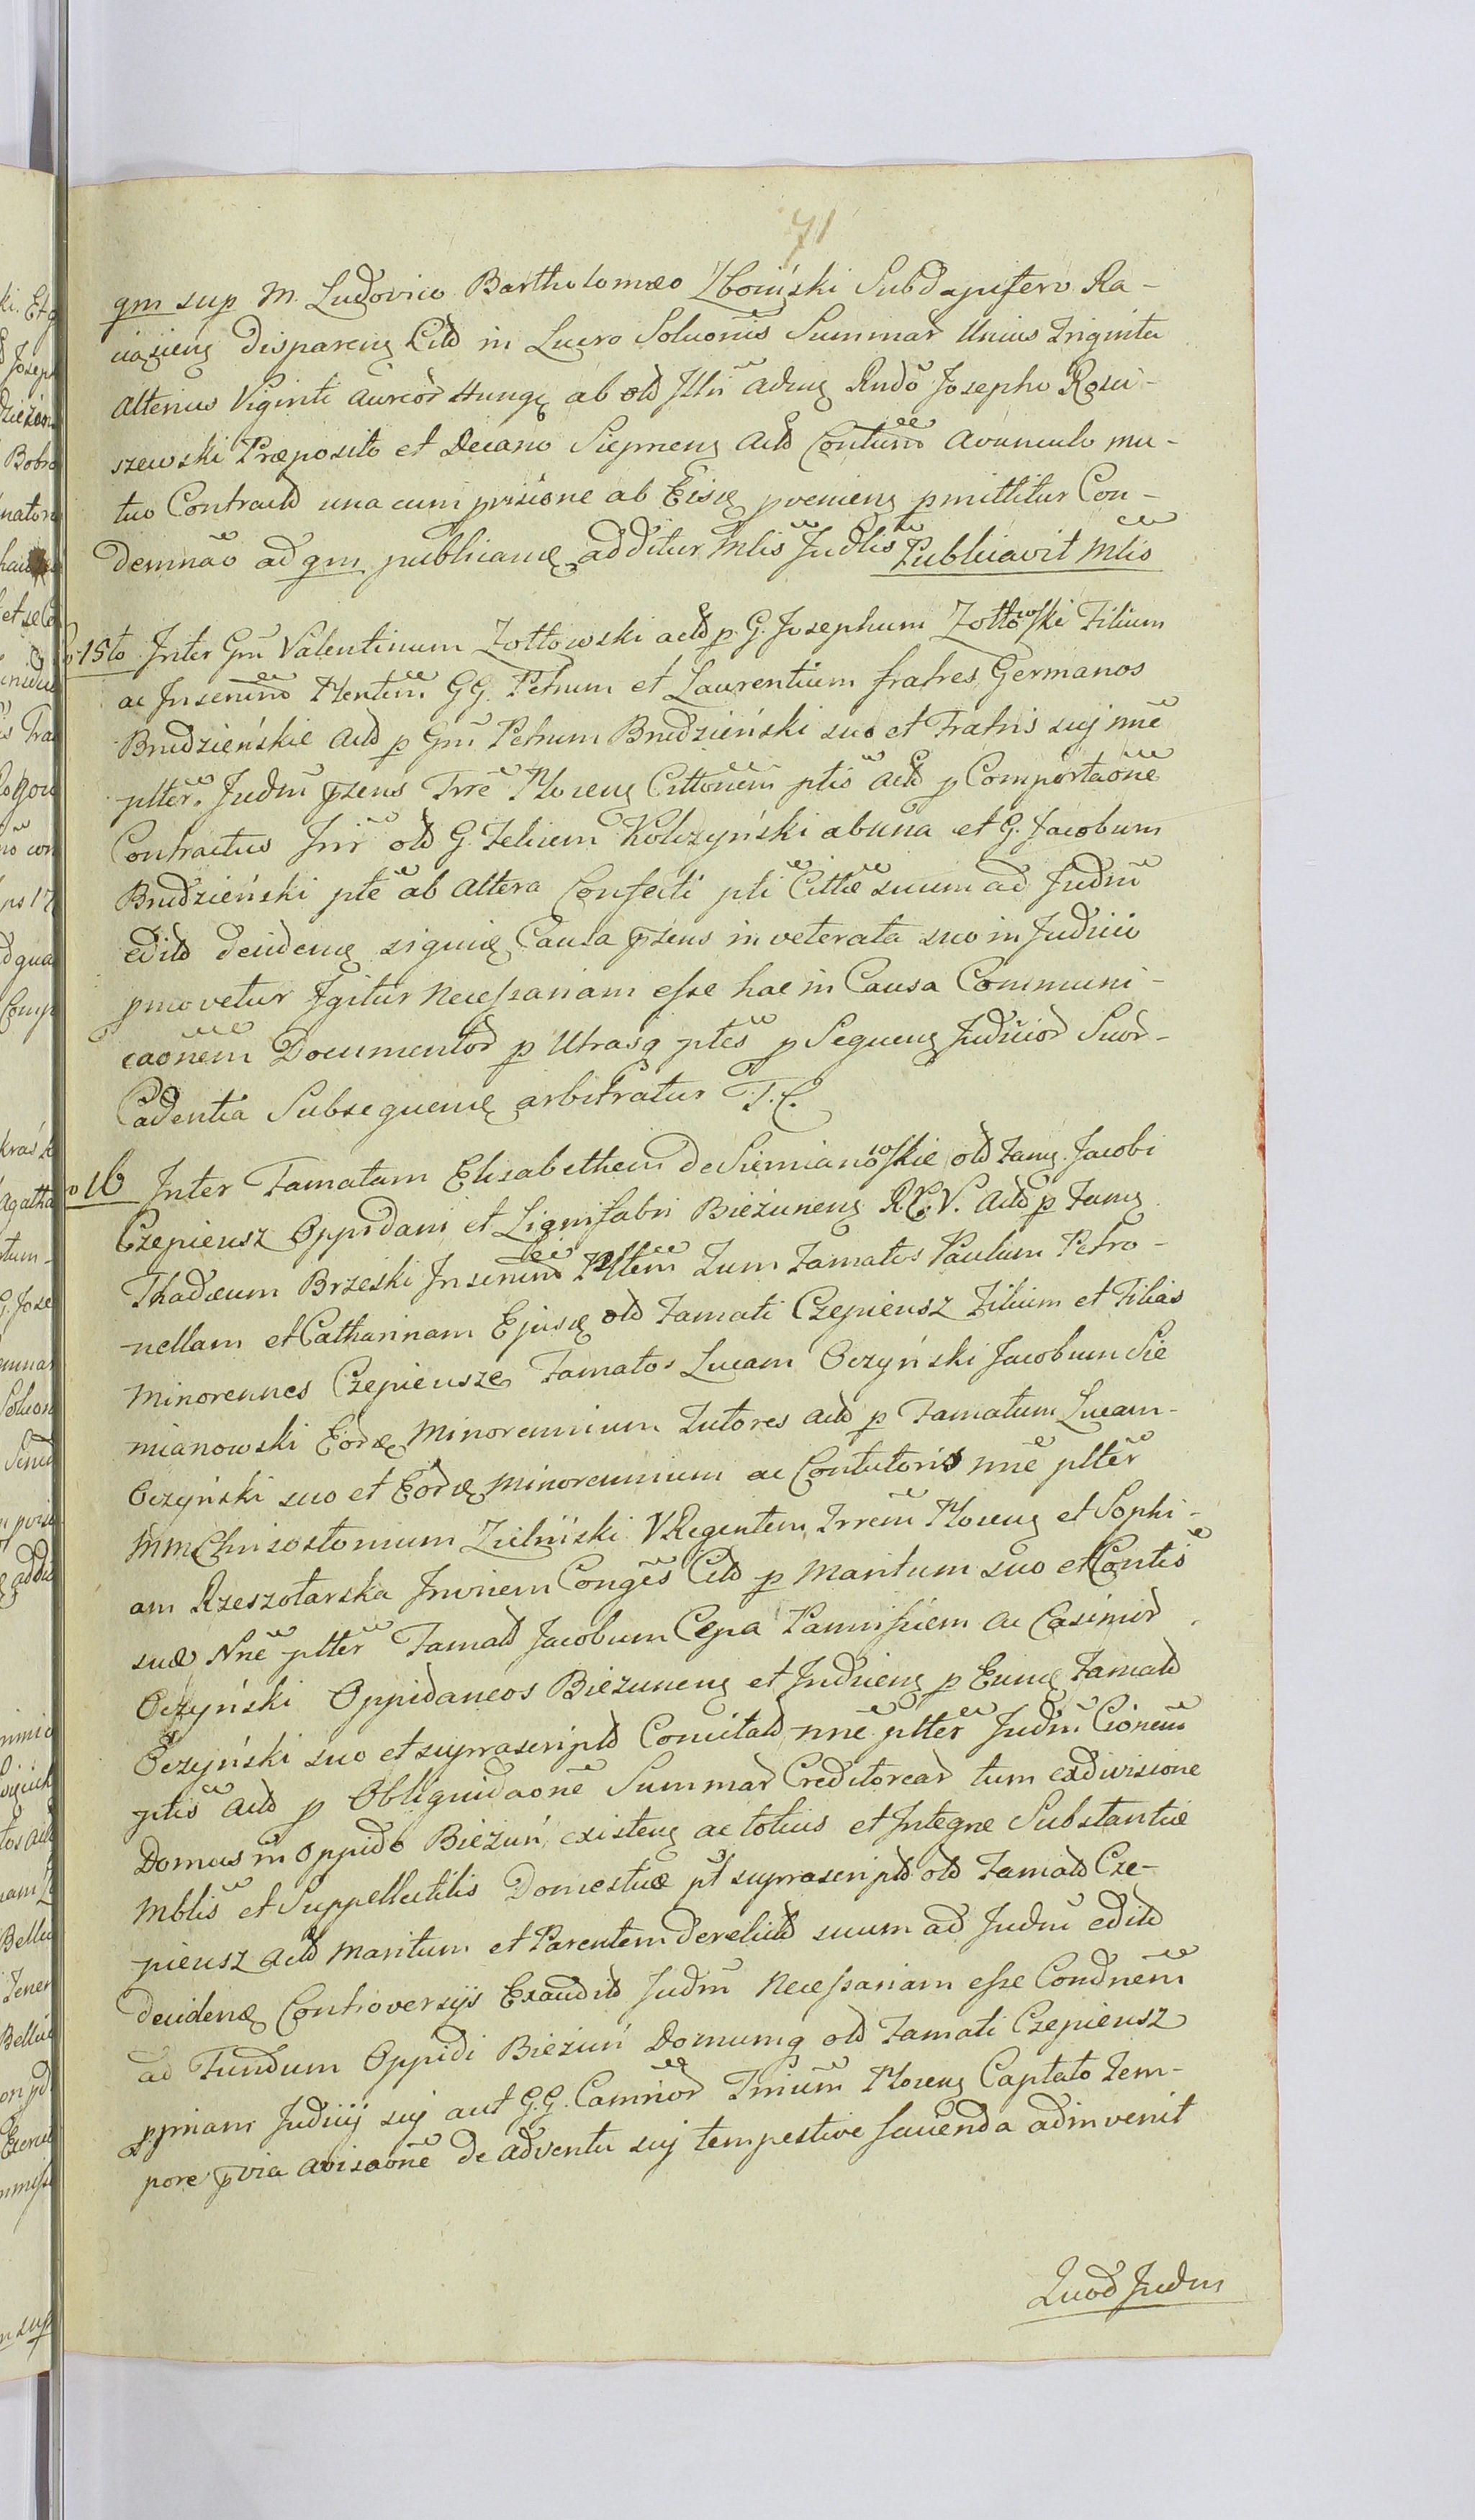 71
qm sup M. Ludovico Bartholomæo Zboiński Subdapifero Ra-
ciązieng Disparcng Citd in Lucro Soluonis Summar Unius Triginta
alterius Viginti aureor Hung ab old Illri adng Rndo Josepho Rosci-
szewski Præposito et Decano Siepmeng Actd Contum avunculo mu-
tuo Contractd una cum prisione ab Eisq pveniengs pmittitur Con-
demnao ad qm publicanq additur Mlis Judlis Publicavit Mlis
15to Inter Gm Valentinum Zołtowski actd p. G. Josephum Zołtowski Filium
ac Insenino Mentem GG. Petrum et Laurentium fratres Germanos
Brudzieńskie Actd p Gm Petrum Brudzieński suo et Fratris suj nne
plter. Judm pzens Trre Ploceng Cittonem ptis Actd p Comportaone
Contractus Inr old G. Felicem Kolczyński ab una et G. Jacobum
Brudzieński pte ab altera Confecti pti Cittæ suum ad Judm
editd decidenq siquiq Causa pzens inveterata suo in Judicio
pmovetur Igitur Necessariam esse hac in Causa Communi-
caonem Documentor p Utrasq ptes p Sequeng Judicior Suor-
Cadentia Subsequenq arbitratur T. C.
16 Inter Famatam Elisabetham de Siemianowskie old Famg. Jacobi
Czepieusz Oppidani et Lignifabri Bieżuneng R. V. Actd p Famg
Thadæum Brzeski Insenino Pltem Tum Famatos Paulum Petro-
nellam et Catharinam Ejusq old Famati Czepieusz Filium et Filias
Minorennes Czepieusze Famatos Lucam Oczyński Jacobum Sie
mianowski Eorq Minorennium Tutores Actd p Famatum Lucam-
Oczyński suo et Eorq Minorennium ac Contutoris nne plter
MM Chrisostomum Zieliński VRegentem Trrem Ploceng et Sophi-
am Rzeszotarska Inviem Conges Citd p Maritum suo et Contis
suæ Nne plter Famatd Jacobum Cepa Pannificem ac Casimir
Oczyński Oppidaneos Bieżuneng et Indiceng p Eunq Famatd
Oczyński suo et suprascriptd Comitatd nne plter Judm Cionem
ptis Actd p Obliquidaone Summar Creditorear tum ex divisione
Domus in Oppido Bieżuń existeng ac totius et Integræ Substantiæ
Mblis et Suppellectilis Domesticæ pt suprascriptd old Famatd Cze-
pieusz Actd Maritum et Parentem derelictd suum ad Judm editd
decidenq Controversijs Exauditd Judm Necessariam esse Condnem
ad Fundum Oppidi Bieżuń Domumq old Famati Czepieusz
ppriam Judicij suj aut G.G. Camrior Trium Ploceng Captato Tem-
pore pvia avisaone de adventu suj tempestive facienda adinvenit
Quod Judm